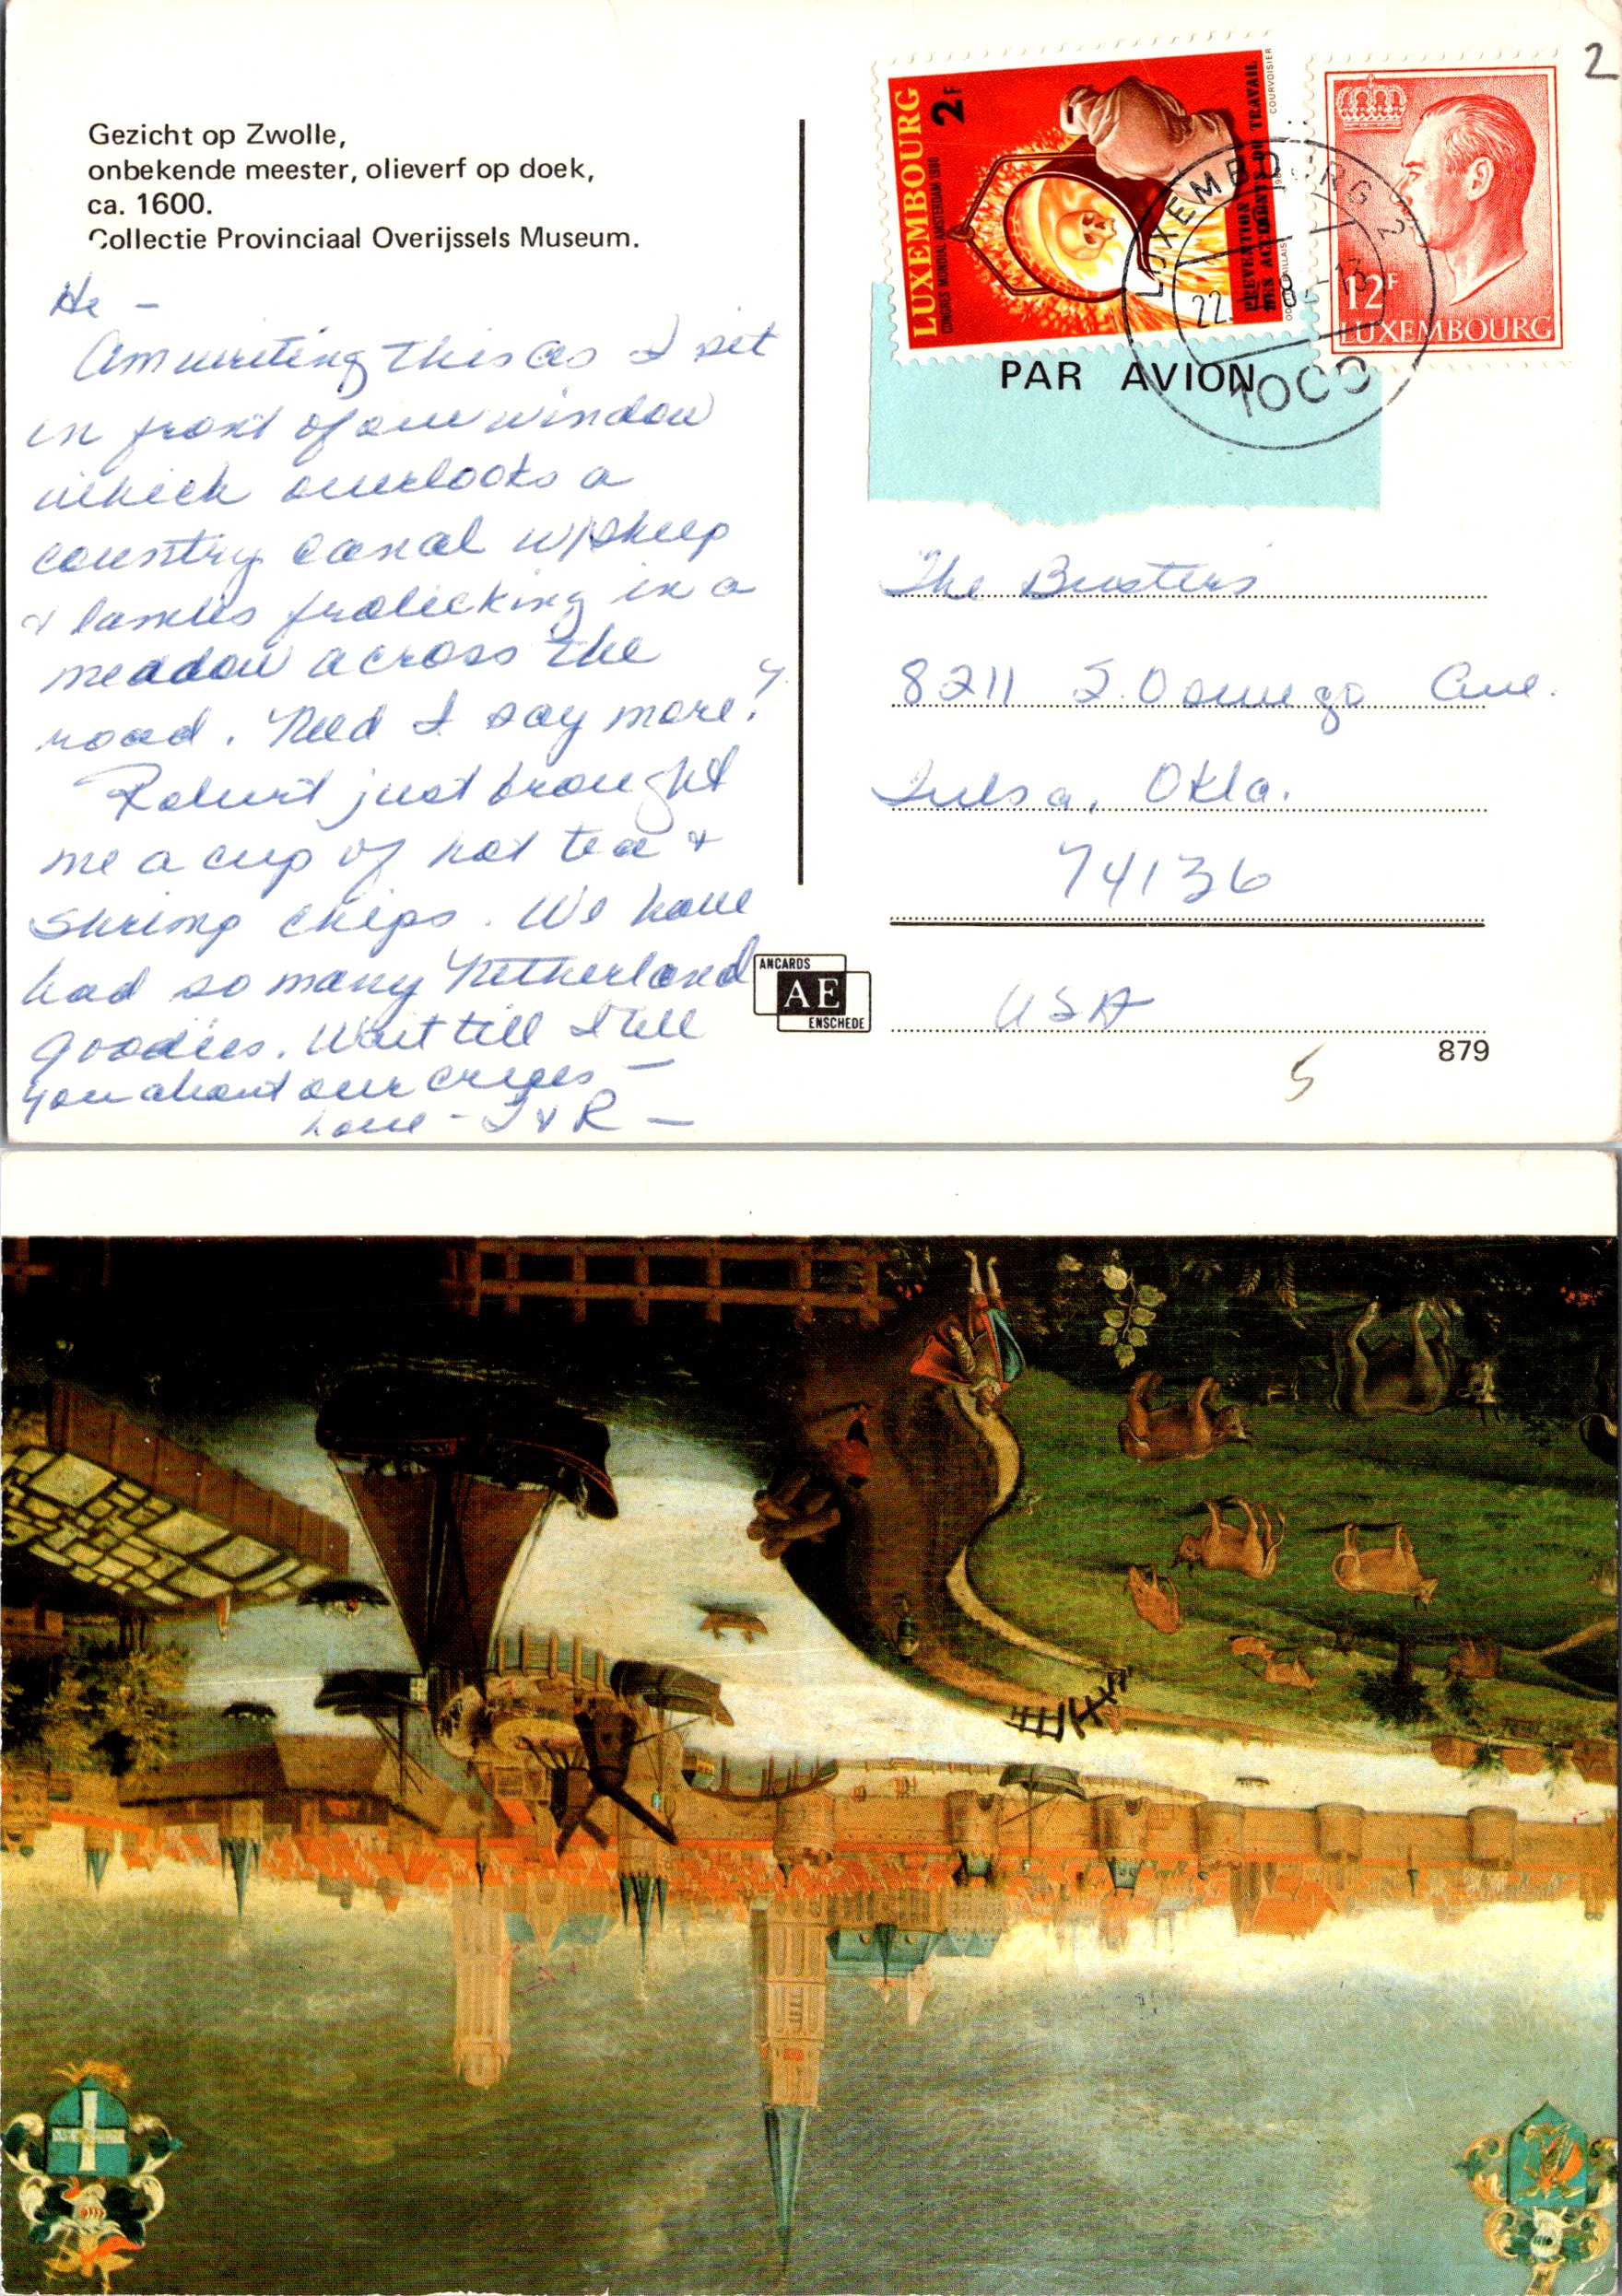 Gezicht op Zwolle,
onbekende meester, olieverf op doek,
ca. 1600.
Collectie Provinciaal Overijssels Museum.
Hi -
Am writing this as I sit
in front of our window
which overlooks a
country canal w/sheep
& lambs frolicking in a
meadow across the
road. Need I say more?
Robert just brought
me a cup of hot tea &
Shrimp chips. We have
had so many Netherland
goodies. Wait till I tell
you about our
Love - J & R -
LUXEMBOURG
2F
CONGRES MONDIAL AMSTERDAM 1980
PREVENTION
DES ACCIDENTS DU TRAVAIL
COURVOISIER
12F
LUXEMBOURG
LUXEMBOURG 2
22.
- 13
1000
2
PAR AVION
The Busters
8211 S. Oswego Ave.
Tulsa, Okla.
74136
USA
ANCARDS
AE
ENSCHEDE
879
5